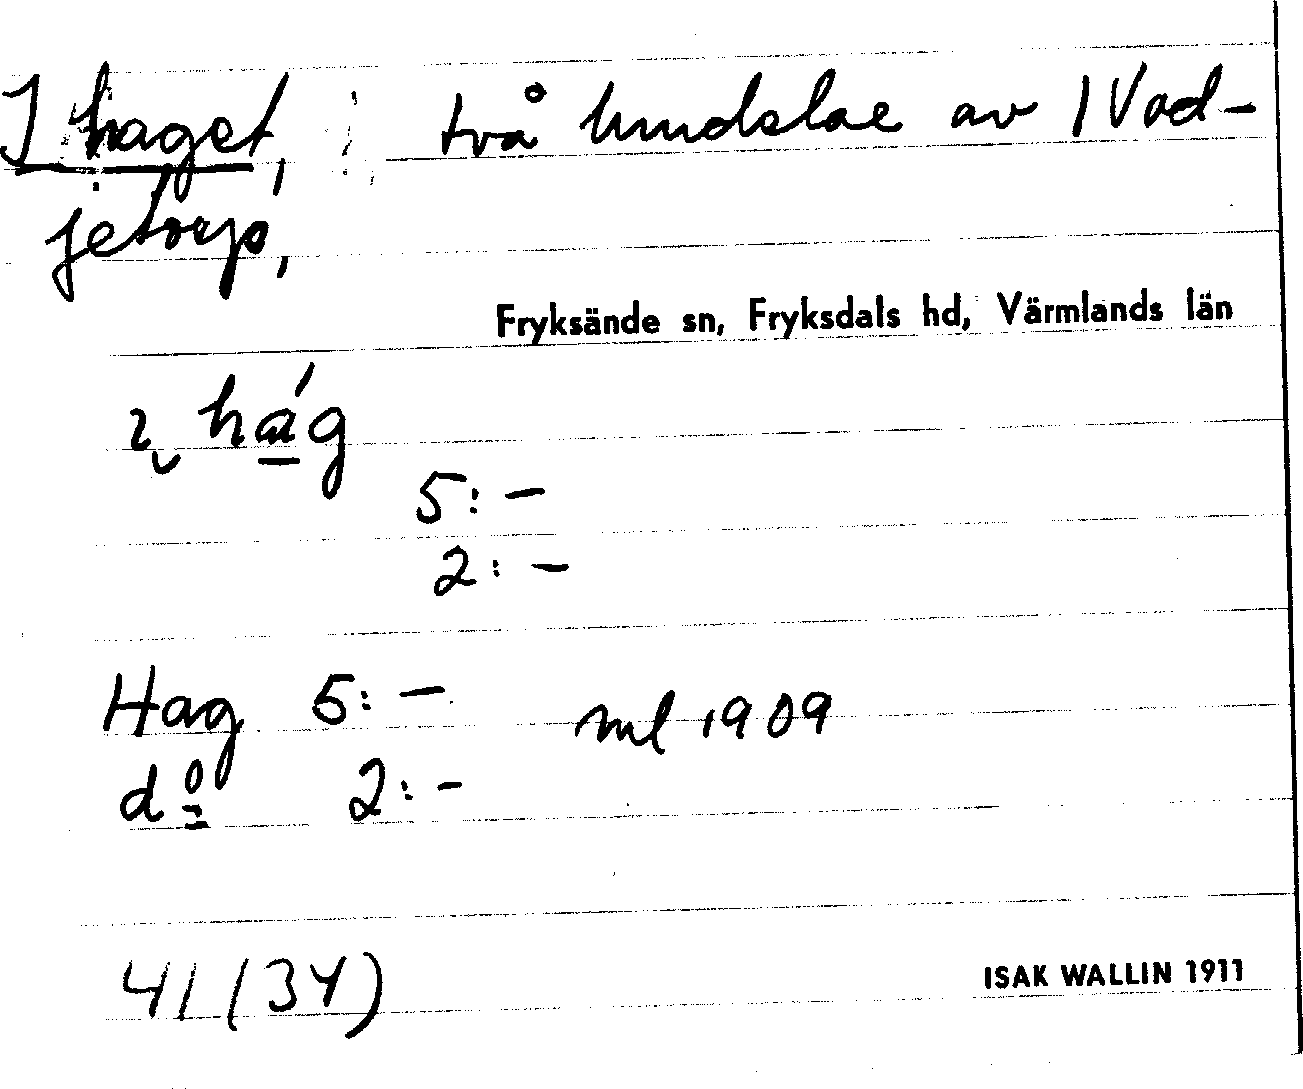 I haget, två hmdslae av 1 Vad-
jetorp,
Fryksände sn, Fryksdals hd, Värmlands län
ı hág
5:-
2:-
Hag 5:- ml 1909
do 2:-
41 (34)
ISAK WALLIN 1911